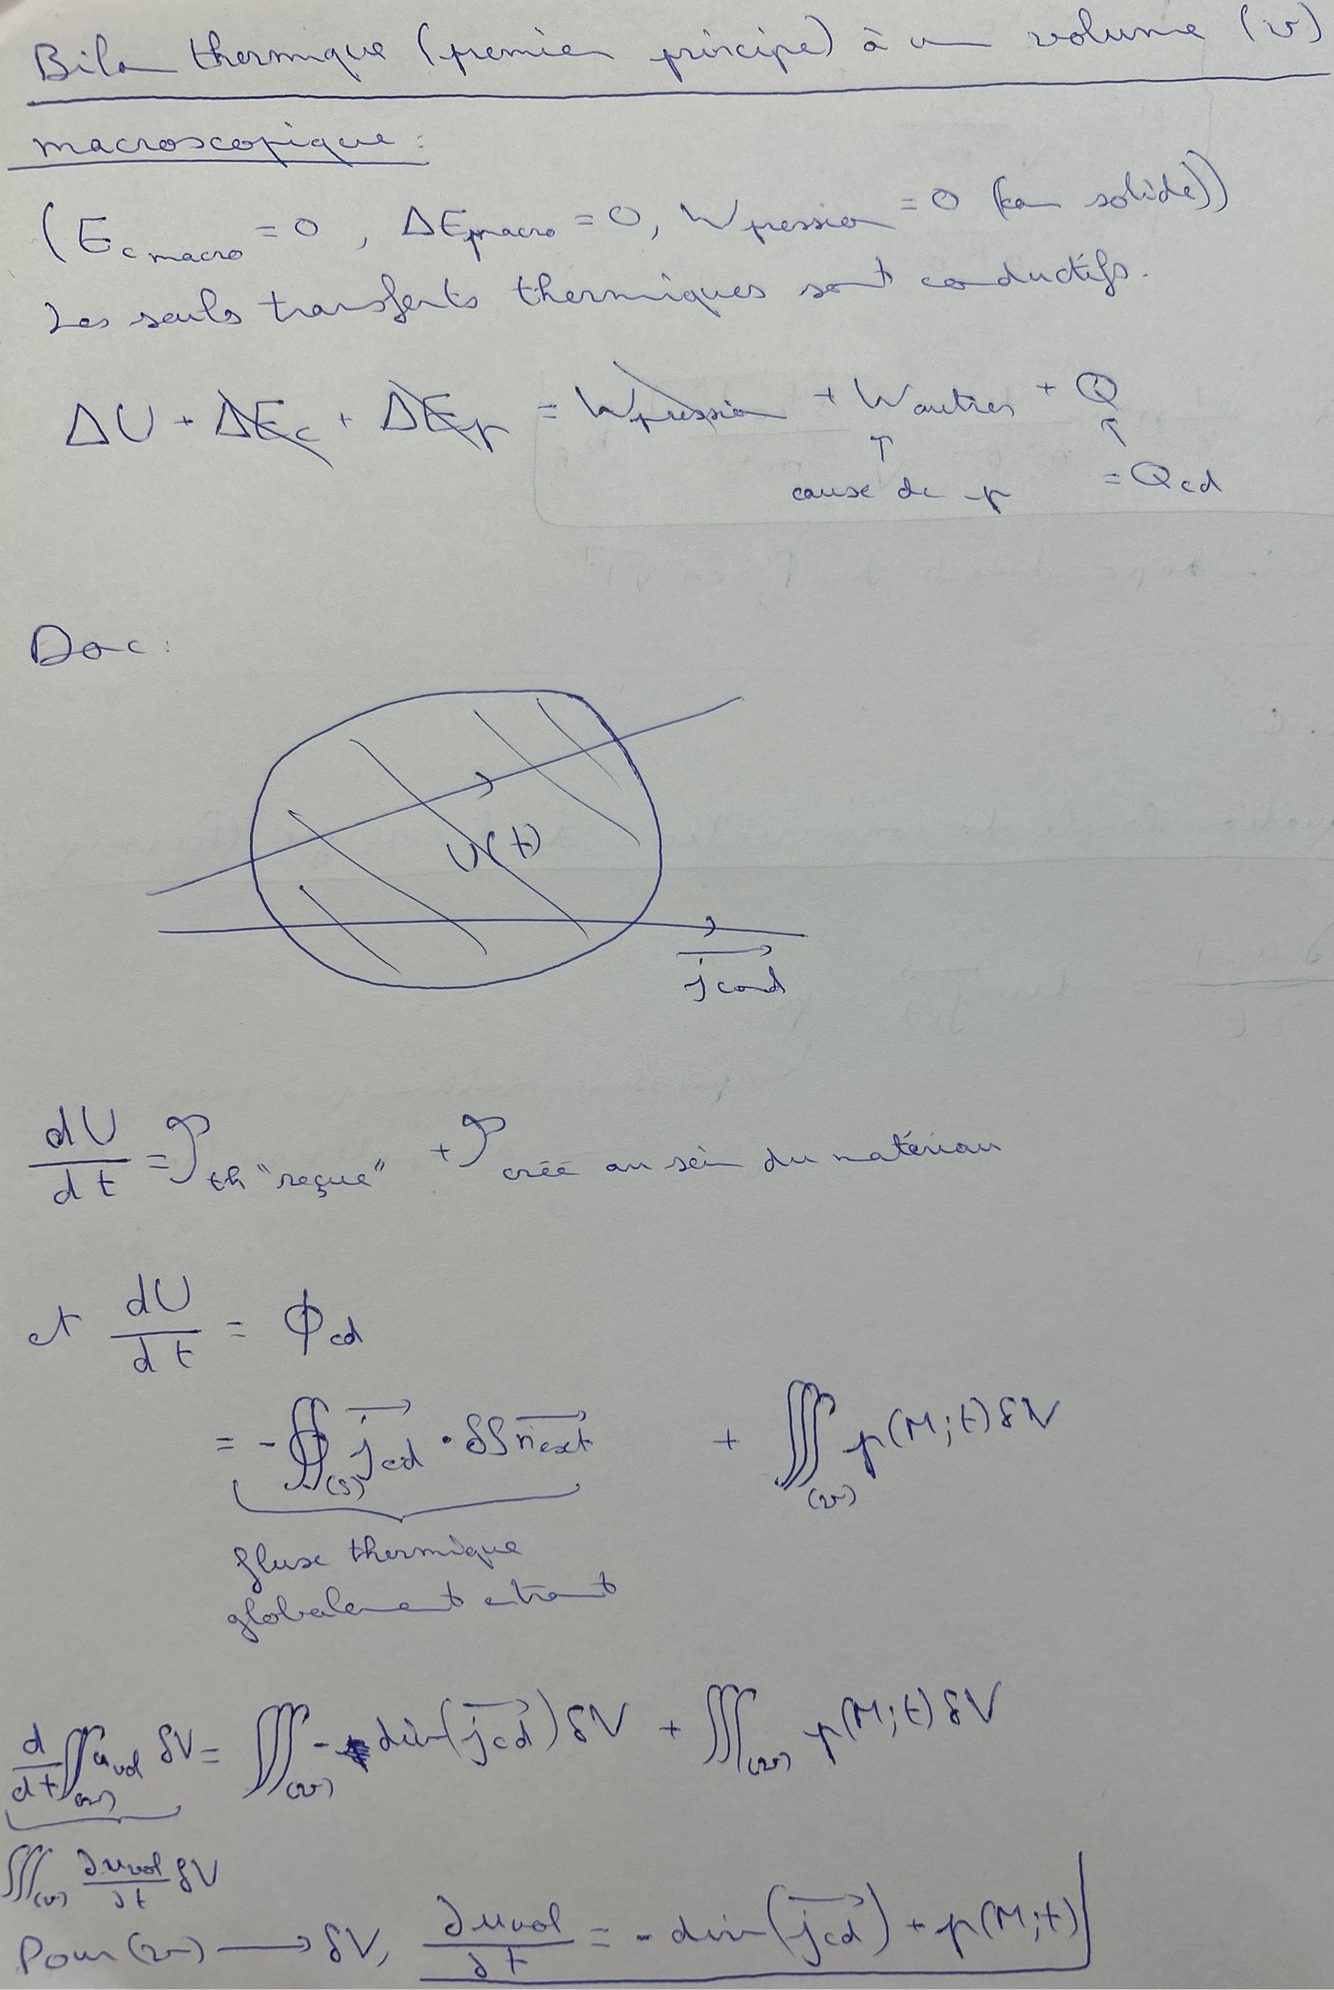 Bilan thermique (premier principe) à un volume (v)
macroscopique :
(Ec macro = 0, ΔEpmacro = 0, Wpression = 0 (car solide))
Les seuls transferts thermiques sont conductifs.
ΔU + ΔEc + ΔEp = Wpression + Wautres + Q
↑ ↑
cause de p = Qcd
Donc :
U(t)
jcond
dU/dt = 𝒫th "reçue" + 𝒫créé au sein du matériau
et dU/dt = ϕcd
= - ∯(S) jcd · δS next + ∭(v) p(M;t) δV
flux thermique
globalement entrant
d/dt ∭(v) uvol δV = ∭(v) - div(jcd) δV + ∭(v) p(M;t) δV
∭(v) ∂uvol/∂t δV
Pour (v) → δV, ∂uvol/∂t = - div(jcd) + p(M;t)